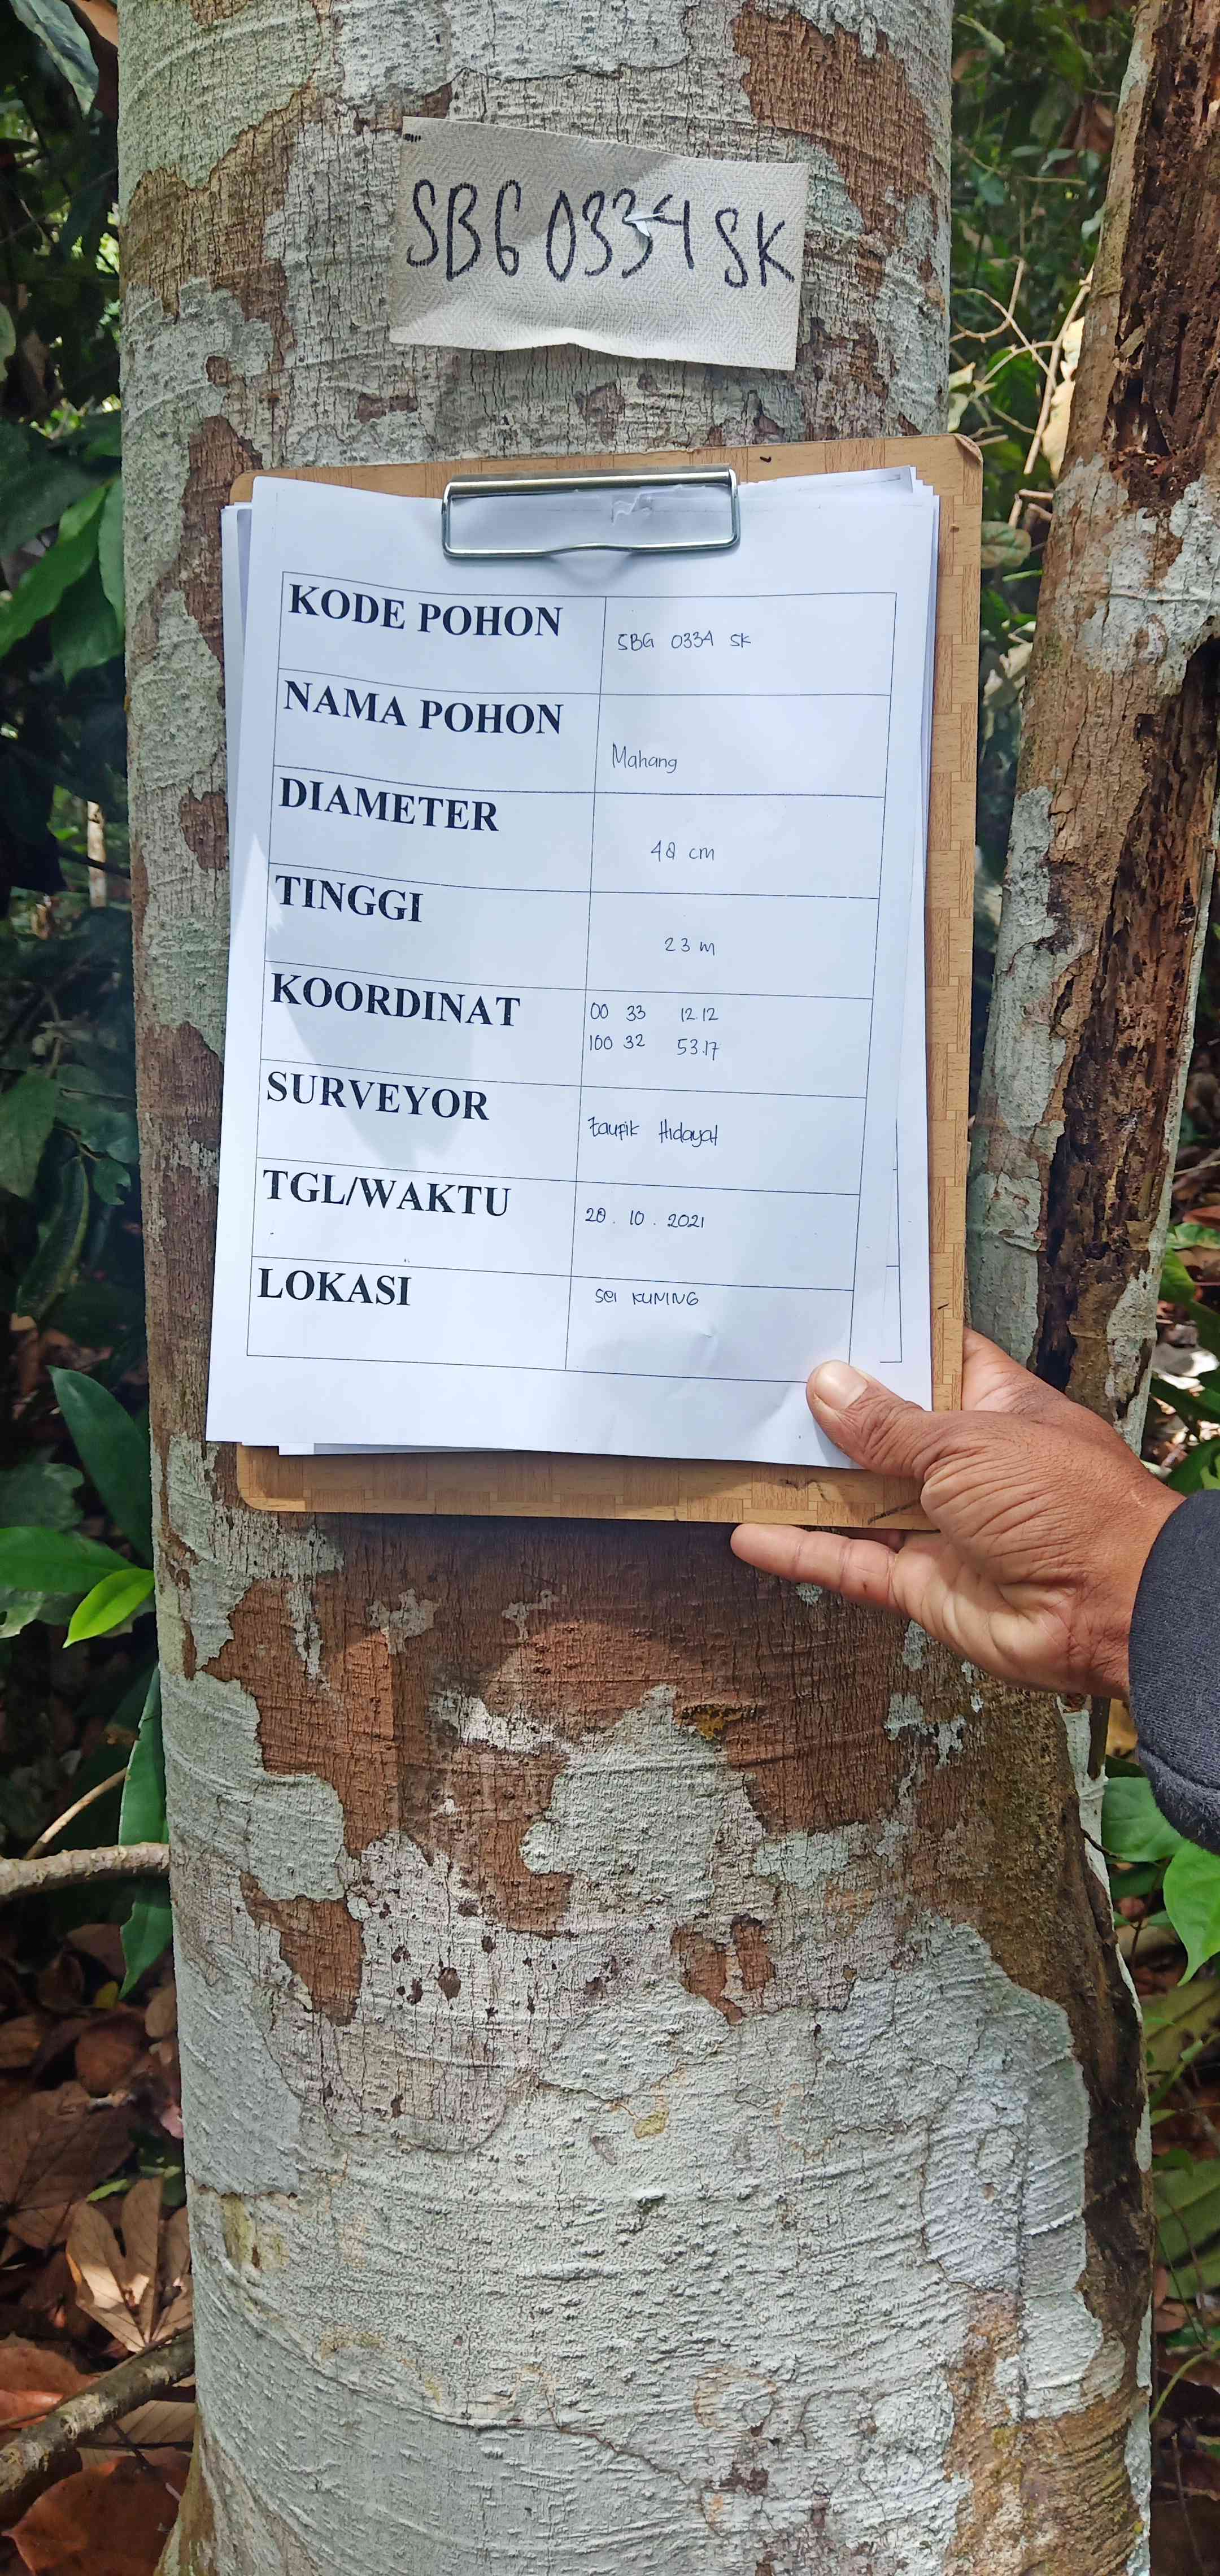 SBG 0334 SK
KODE POHON
SBG 0334 SK
NAMA POHON
Mahang
DIAMETER
48 cm
TINGGI
23 m
KOORDINAT
00 33 12.12
100 32 53.17
SURVEYOR
taupik Hidayat
TGL/WAKTU
20.10.2021
LOKASI
Sei KUNING